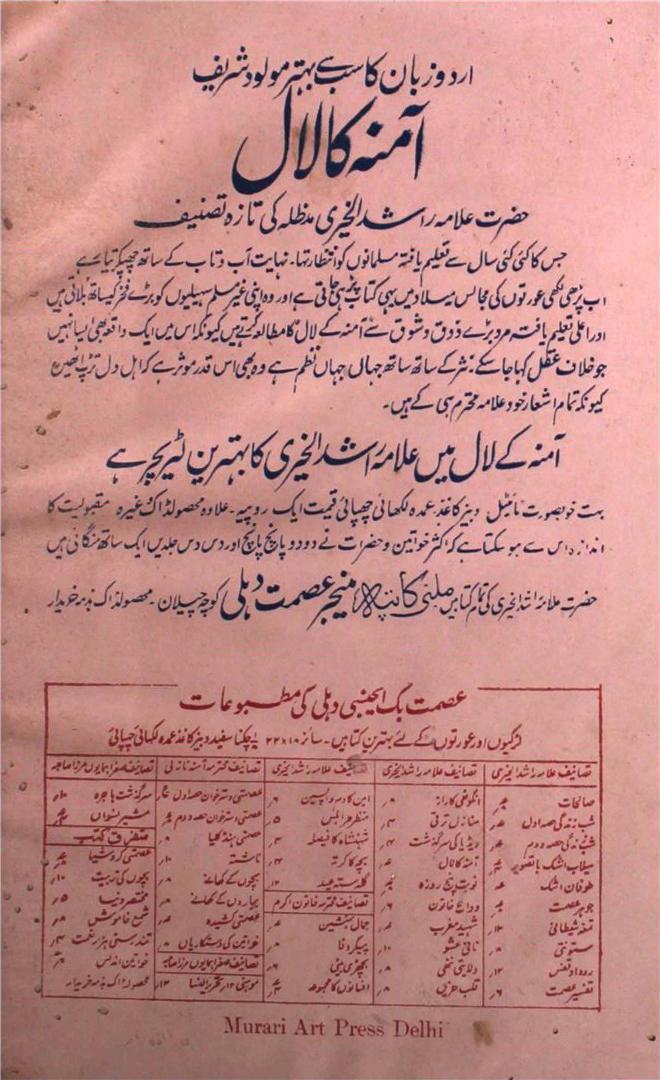 اردو زبان کا سب سے بہتر مولود شریف
آمنہ کا لال
حضرت علامہ راشد الخیری مدظلہ کی تازہ تصنیف
جس کا کئی کئی سال سے تعلیم یافتہ مسلمانوں کو انتظار تھا۔ نہایت آب و تاب کے ساتھ چھپکر تیار ہے
اب پڑھی لکھی عورتوں کی مجالس میلاد میں یہی کتاب پڑھی جاتی ہے اور وہ اپنی غیر مسلم سہیلیوں کو بڑے فخر کیساتھ بلاتی ہیں
اور اعلی تعلیم یافتہ مرد بڑے ذوق و شوق سے آمنہ کے لال کا مطالعہ کرتے ہیں کیونکہ اس میں ایک واقعہ بھی ایسا نہیں
جو خلاف عقل کہا جا سکے۔ نثر کے ساتھ ساتھ جہاں جہاں نظم ہے وہ بھی اس قدر موثر ہے کہ اہل دل تڑپ اٹھیں
کیونکہ تمام اشعار خود علامہ محترم ہی کے ہیں۔
آمنہ کے لال میں علامہ راشد الخیری کا بہترین لٹریچر ہے
بہت خوبصورت ٹائیٹل دبیز کاغذ عمدہ لکھائی چھپائی قیمت ایک روپیہ۔ علاوہ محصولڈاک وغیرہ مقبولیت کا
اندازہ اس سے ہو سکتا ہے کہ اکثر خواتین و حضرات نے دو دو پانچ پانچ اور دس دس جلدیں ایک ساتھ منگائی ہیں
حضرت علامہ راشد الخیری کی تمام کتابیں ملنے کا پتہ منیجر عصمت دہلی کوچہ چیلان۔ محصولڈاک بذمہ خریدار
عصمت بک ایجنسی دہلی کی مطبوعات
لڑکیوں اور عورتوں کے لئے بہترین کتابیں۔ سائز ۱۸×۲۲ چکنا سفید دبیز کاغذ عمدہ لکھائی چھپائی
تصانیف علامہ راشد الخیری
صالحات
شب زندگی حصہ اول
شب زندگی حصہ دوم
سیلاب اشک باتصویر
طوفان اشک
جوہر عصمت
تمغہ شیطانی
ستونتی
روداد قفس
تفسیر عصمت
تصانیف علامہ راشد الخیری
انگوٹھی کا راز
منازل ترقی
ودیا کی سرگذشت
آمنہ کا لال
نوبت پنج روزہ
وداع خاتون
شہید مغرب
نانی عشو
ولایتی ننھی
قلب حزیں
تصنیف علامہ راشد الخیری
ابن کا دم واپسین
منظر طرابلس
شہنشاہ کا فیصلہ
بچہ کا کرتہ
گلدستہ عید
تصانیف محترمہ خاتون اکرم
جمال ہمنشین
پیکر وفا
بچھڑی بیٹی
افسانوں کا مجموعہ
تصانیف محترمہ آمنہ نازلی
عصمتی دسترخوان حصہ اول
عصمتی دسترخوان حصہ دوم
عصمتی ہنڈ کلیا
ناشتہ
بچوں کے کھانے
بیماروں کے کھانے
عصمتی کشیدہ
خواتین کی دستکاریاں
تصانیف صغرا ہمایوں مرزا صاحبہ
موہنی ۱۲ر تحریر النسا ۱۲ر
تصانیف صغرا ہمایوں مرزا صاحبہ
سرگذشت ہاجرہ
مشیر نسواں
متفرق کتب
عصمتی کروشیا
بچوں کی تربیت
مختصر دنیا
شمع خاموش
تندرستی ہزار نعمت
خواتین اندلس
محصولڈاک بذمہ خریدار
Murari Art Press Delhi